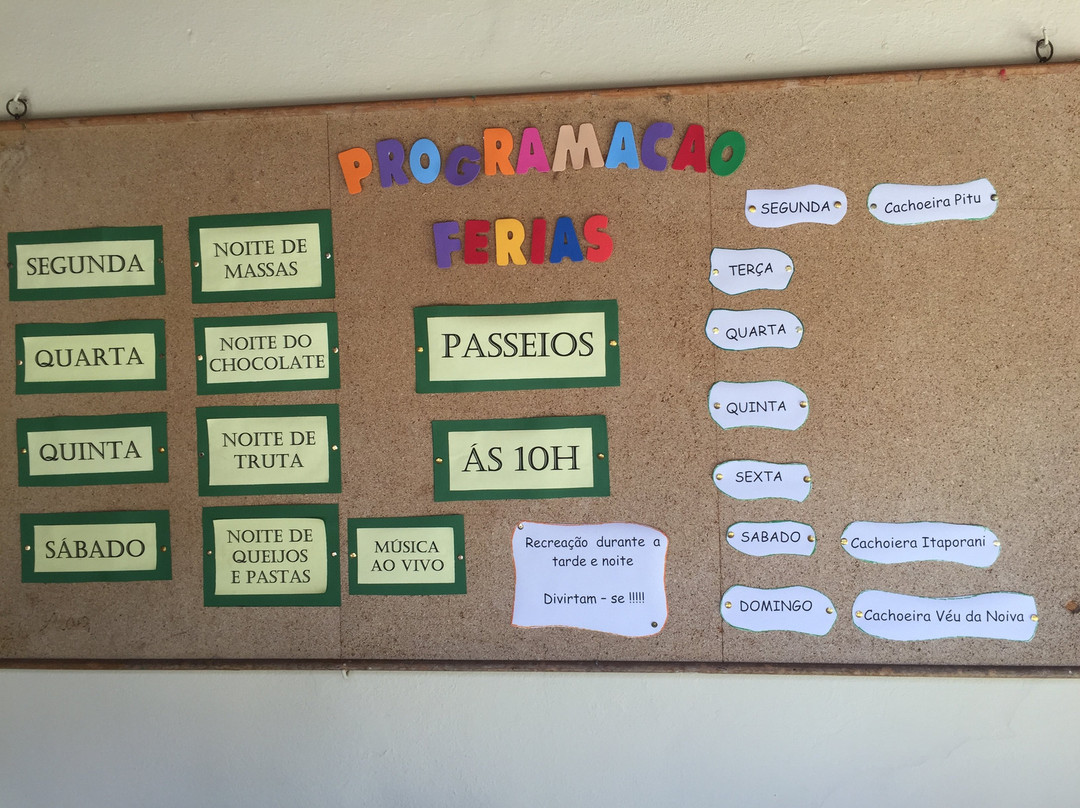 PROGRAMACAO
FERIAS
SEGUNDA
NOITE DE
MASSAS
QUARTA
NOITE DO
CHOCOLATE
QUINTA
NOITE DE
TRUTA
SÁBADO
NOITE DE
QUEIJOS
E PASTAS
MÚSICA
AO VIVO
PASSEIOS
ÁS 10H
Recreação durante a
tarde e noite
Divirtam – se !!!!!
SEGUNDA
Cachoeira Pitu
TERÇA
QUARTA
QUINTA
SEXTA
SABADO
Cachoiera Itaporani
DOMINGO
Cachoeira Véu da Noiva